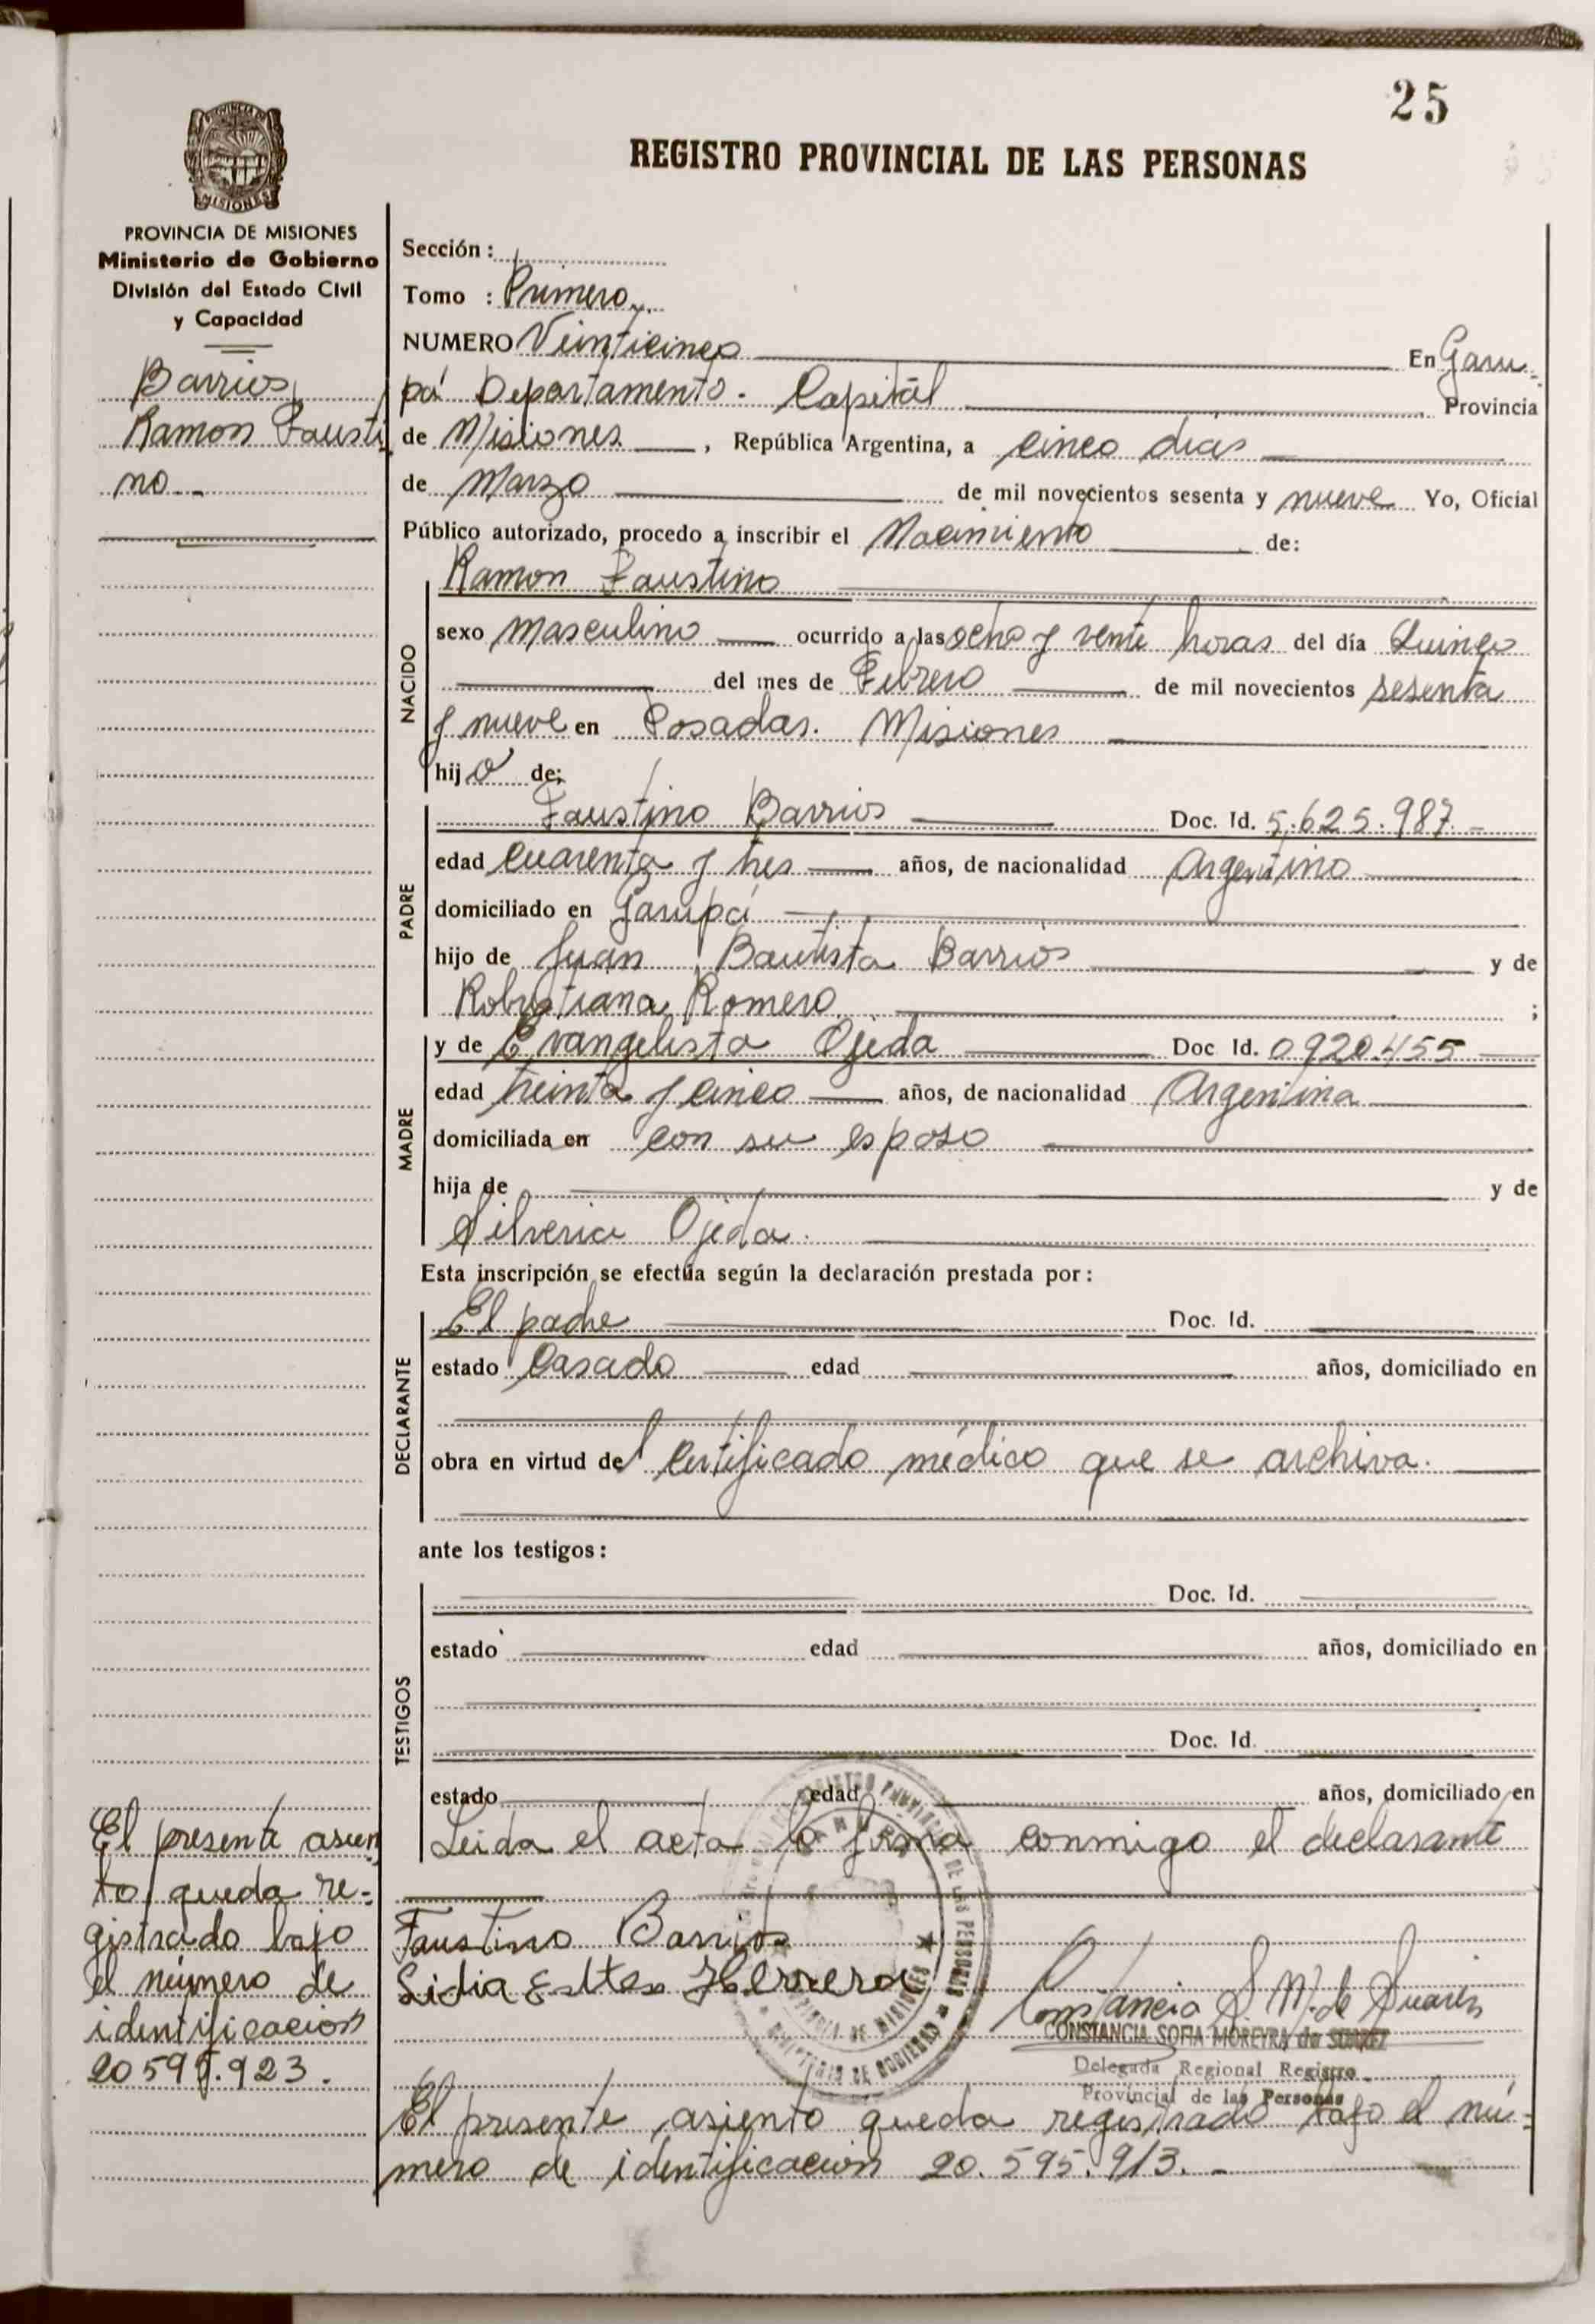 25
REGISTRO PROVINCIAL DE LAS PERSONAS
PROVINCIA DE
MISIONES
PROVINCIA DE MISIONES
Ministerio de Gobierno
División del Estado Civil
y Capacidad
Barrios,
Ramon Fausti
no.-
Sección :
Tomo : Primero
NUMERO Veinticinco En Garu-
pá Departamento. Capital Provincia
de Misiones , República Argentina, a cinco dias
de Marzo de mil novecientos sesenta y nueve Yo, Oficial
Público autorizado, procedo a inscribir el Nacimiento de:
NACIDO
Ramon Faustino
sexo Masculino ocurrido a las ocho y vente horas del día Quince
del mes de Febrero de mil novecientos sesenta
y nueve en Posadas. Misiones
hijo de:
PADRE
Faustino Barrios Doc. Id. 5.625.987.-
edad cuarenta y tres años, de nacionalidad Argentino
domiciliado en Garupá
hijo de Juan Bautista Barrios y de
Robustiana Romero ;
MADRE
y de Evangelista Ojeda Doc Id. 0920.455
edad treinta y cinco años, de nacionalidad Argentina
domiciliada en con su esposo
hija de y de
Silveria Ojeda.
Esta inscripción se efectúa según la declaración prestada por :
DECLARANTE
El padre Doc. Id.
estado Casado edad años, domiciliado en
obra en virtud del certificado médico que se archiva.
ante los testigos :
TESTIGOS
Doc. Id.
estado edad años, domiciliado en
Doc. Id.
estado edad años, domiciliado en
Leida el acta la firma conmigo el declarante
Faustino Barrios
Lidia Herrera
Constancia S M. de Suarez
CONSTANCIA SOFIA MOREYRA de SUAREZ
Delegada Regional Registro
Provincial de las Personas
El presente asiento queda registrado bajo el nú-
mero de identificacion 20.595.913.-
El presente asien
to queda re-
gistrado bajo
el número de
identificacion
923.